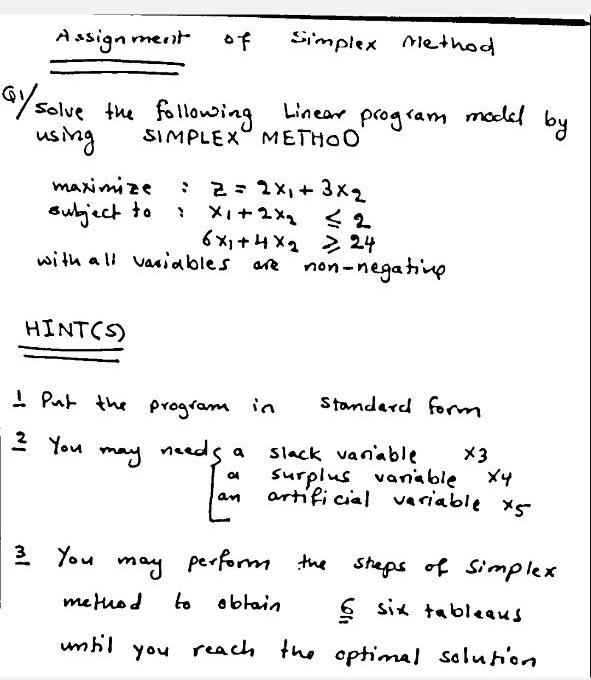 Assignment of Simplex Method
Q1/ Solve the following Linear program model by
using SIMPLEX METHOD
maximize : Z = 2x₁ + 3x₂
subject to : x₁ + 2x₂ ≤ 2
6x₁ + 4x₂ ≥ 24
with all variables are non-negative
HINT(S)
1 Put the program in standard form
2 You may needs a slack variable x3
a surplus variable x4
an artificial variable x5
3 You may perform the steps of simplex
method to obtain 6 six tableaus
until you reach the optimal solution